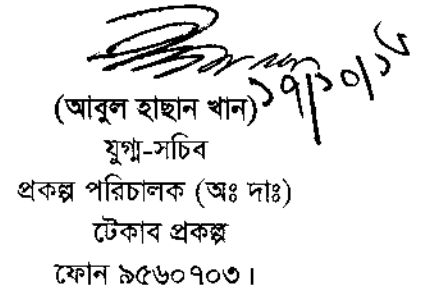 ১৭/১০/১৬
(আবুল হাছান খান)
যুগ্ম-সচিব
প্রকল্প পরিচালক (অঃ দাঃ)
টেকাব প্রকল্প
ফোন ৯৫৬০৭০৩।